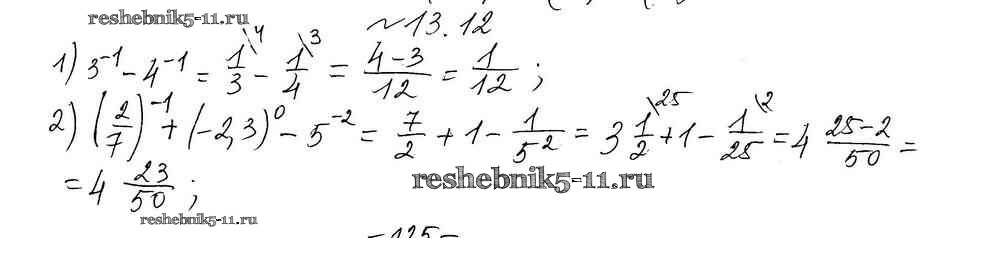 reshebnik5-11.ru
~ 13.12
1) 3⁻¹ - 4⁻¹ = 1/3 \4 - 1/4 \3 = (4-3)/12 = 1/12 ;
2) (2/7)⁻¹ + (-2,3)⁰ - 5⁻² = 7/2 + 1 - 1/5² = 3 1/2 \25 + 1 - 1/25 \2 = 4 (25-2)/50 =
= 4 23/50 ;
reshebnik5-11.ru
reshebnik5-11.ru